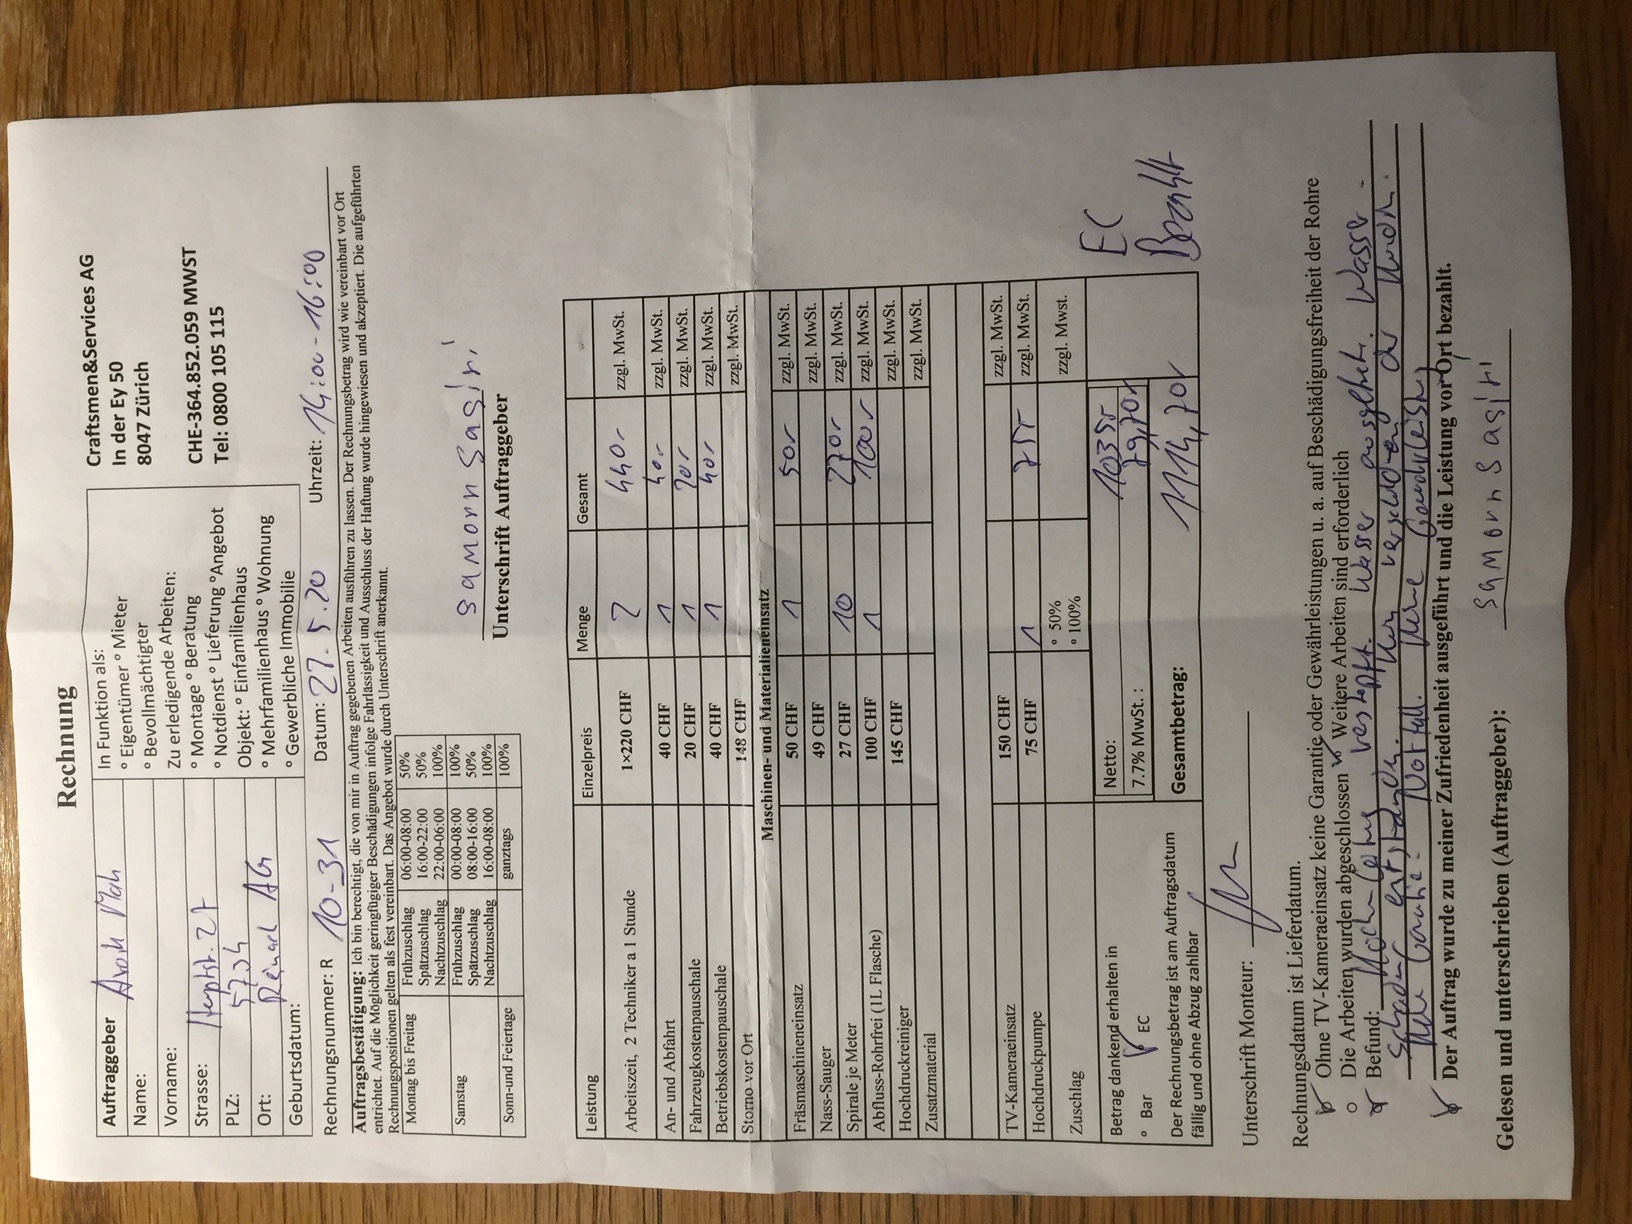 Rechnung
Auftraggeber
Name:
Vorname:
Strasse: Hauptstr. 27
PLZ: 5734
Ort: Reinach AG
Geburtsdatum:
In Funktion als:
° Eigentümer ° Mieter
° Bevollmächtigter
Zu erledigende Arbeiten:
° Montage ° Beratung
° Notdienst ° Lieferung °Angebot
Objekt: ° Einfamilienhaus
° Mehrfamilienhaus ° Wohnung
° Gewerbliche Immobilie
Craftsmen&Services AG
In der Ey 50
8047 Zürich
CHE-364.852.059 MWST
Tel: 0800 105 115
Rechnungsnummer: R 10-31 Datum: 27.5.20 Uhrzeit: 14:00-16:00
Auftragsbestätigung: Ich bin berechtigt, die von mir in Auftrag gegebenen Arbeiten ausführen zu lassen. Der Rechnungsbetrag wird wie vereinbart vor Ort
entrichtet. Auf die Möglichkeit geringfügiger Beschädigungen infolge Fahrlässigkeit und Ausschluss der Haftung wurde hingewiesen und akzeptiert. Die aufgeführten
Rechnungspositionen gelten als fest vereinbart. Das Angebot wurde durch Unterschrift anerkannt.
Montag bis Freitag Frühzuschlag 06:00-08:00 50%
Spätzuschlag 16:00-22:00 50%
Nachtzuschlag 22:00-06:00 100%
Samstag Frühzuschlag 00:00-08:00 100%
Spätzuschlag 08:00-16:00 50%
Nachtzuschlag 16:00-08:00 100%
Sonn-und Feiertage ganztags 100%
samorn sasiri
Unterschrift Auftraggeber
Leistung Einzelpreis Menge Gesamt
Arbeitszeit, 2 Techniker a 1 Stunde 1×220 CHF 2 440.- zzgl. MwSt.
An- und Abfahrt 40 CHF 1 40.- zzgl. MwSt.
Fahrzeugkostenpauschale 20 CHF 1 20.- zzgl. MwSt.
Betriebskostenpauschale 40 CHF 1 40.- zzgl. MwSt.
Storno vor Ort 148 CHF zzgl. MwSt.
Maschinen- und Materialieneinsatz
Fräsmaschineneinsatz 50 CHF 1 50.- zzgl. MwSt.
Nass-Sauger 49 CHF zzgl. MwSt.
Spirale je Meter 27 CHF 10 270.- zzgl. MwSt.
Abfluss-Rohrfrei (1L Flasche) 100 CHF 1 100.- zzgl. MwSt.
Hochdruckreiniger 145 CHF zzgl. MwSt.
Zusatzmaterial zzgl. MwSt.
TV-Kameraeinsatz 150 CHF zzgl. MwSt.
Hochdruckpumpe 75 CHF 1 75.- zzgl. MwSt.
Zuschlag ° 50% zzgl. Mwst.
° 100%
Betrag dankend erhalten in
° Bar EC
Der Rechnungsbetrag ist am Auftragsdatum
fällig und ohne Abzug zahlbar
Netto: 1035.-
7.7% MwSt. : 79,70.-
Gesamtbetrag: 1114,70.-
EC
Bezahlt
Unterschrift Monteur:
Rechnungsdatum ist Lieferdatum.
Ohne TV-Kameraeinsatz keine Garantie oder Gewährleistungen u. a. auf Beschädigungsfreiheit der Rohre
° Die Arbeiten wurden abgeschlossen Weitere Arbeiten sind erforderlich
Befund: verstopft. Wasser Wasser-
Schaden entstanden. der
Garantie. Notfall. Keine Gewährleistung
Der Auftrag wurde zu meiner Zufriedenheit ausgeführt und die Leistung vor Ort bezahlt.
Gelesen und unterschrieben (Auftraggeber): samorn sasiri